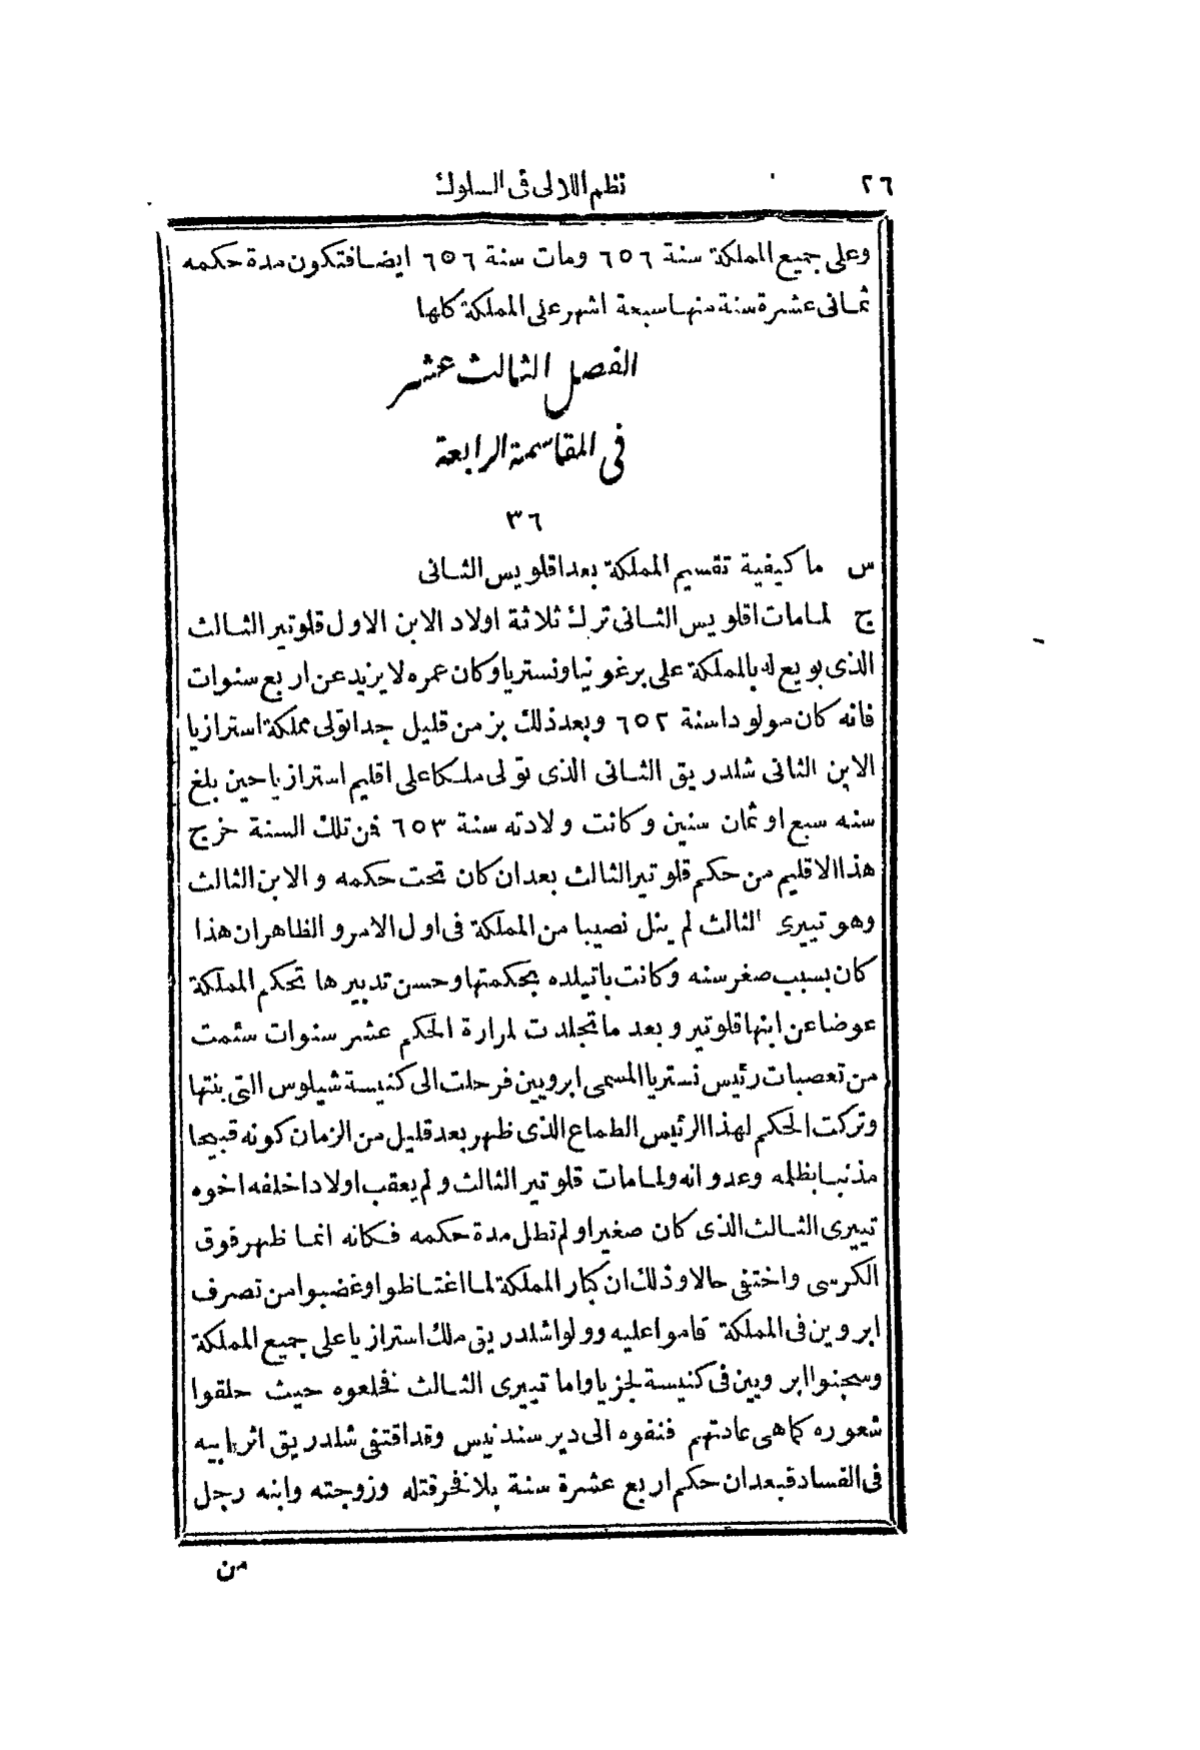 ٢٦ نظم اللالى فى السلوك
وعلى جميع المملكة سنة ٦٥٦ ومات سنة ٦٥٦ ايضا فتكون مدة حكمه
ثمانى عشرة سنة منها سبعة اشهر على المملكة كلها
الفصل الثالث عشر
فى المقاسمة الرابعة
٣٦
س ما كيفية تقسيم المملكة بعد اقلويس الثانى
ج لما مات اقلويس الثانى ترك ثلاثة اولاد الابن الاول قلوتير الثالث
الذى بويع له بالمملكة على برغونيا ونستريا وكان عمره لا يزيد عن اربع سنوات
فانه كان مولودا سنة ٦٥٢ وبعد ذلك بزمن قليل جدا تولى مملكة استرازيا
الابن الثانى شلدريق الثانى الذى تولى ملكا على اقليم استرازيا حين بلغ
سنه سبع او ثمان سنين وكانت ولادته سنة ٦٥٣ فمن تلك السنة خرج
هذا الاقليم من حكم قلوتير الثالث بعد ان كان تحت حكمه والابن الثالث
وهو تييرى الثالث لم ينل نصيبا من المملكة فى اول الامر والظاهر ان هذا
كان بسبب صغر سنه وكانت باتيلده بحكمتها وحسن تدبيرها تحكم المملكة
عوضا عن ابنها قلوتير وبعد ما تجلدت لمرارة الحكم عشر سنوات سئمت
من تعصبات رئيس نستريا المسمى ابرويين فرحلت الى كنيسة شيلوس التى بنتها
وتركت الحكم لهذا الرئيس الطماع الذى ظهر بعد قليل من الزمان كونه قبيحا
مذنبا بظلمه وعدوانه ولما مات قلوتير الثالث ولم يعقب اولادا خلفه اخوه
تييرى الثالث الذى كان صغيرا ولم تطل مدة حكمه فكانه انما ظهر فوق
الكرسى واختفى حالا وذلك ان كبار المملكة لما اغتاظوا وغضبوا من تصرف
ابروين فى المملكة قاموا عليه وولوا شلدريق ملك استرازيا على جميع المملكة
وسجنوا ابرويين فى كنيسة لجزيا واما تييرى الثالث فخلعوه حيث حلقوا
شعوره كما هى عادتهم فنفوه الى دير سندنيس وقد اقتفى شلدريق اثر ابيه
فى الفساد فبعد ان حكم اربع عشرة سنة بلا فخر قتله وزوجته وابنه رجل
من